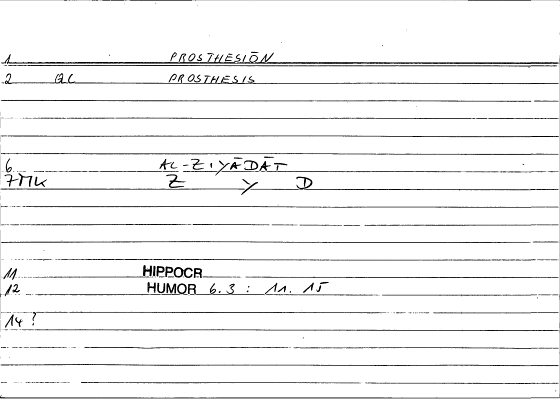 1 PROSTHESIŌN
2 QL PROSTHESIS
6 AL-ZIYĀDĀT
7MK Z Y D
11 HIPPOCR
12 HUMOR 6.3 : 11. 15
14 ?